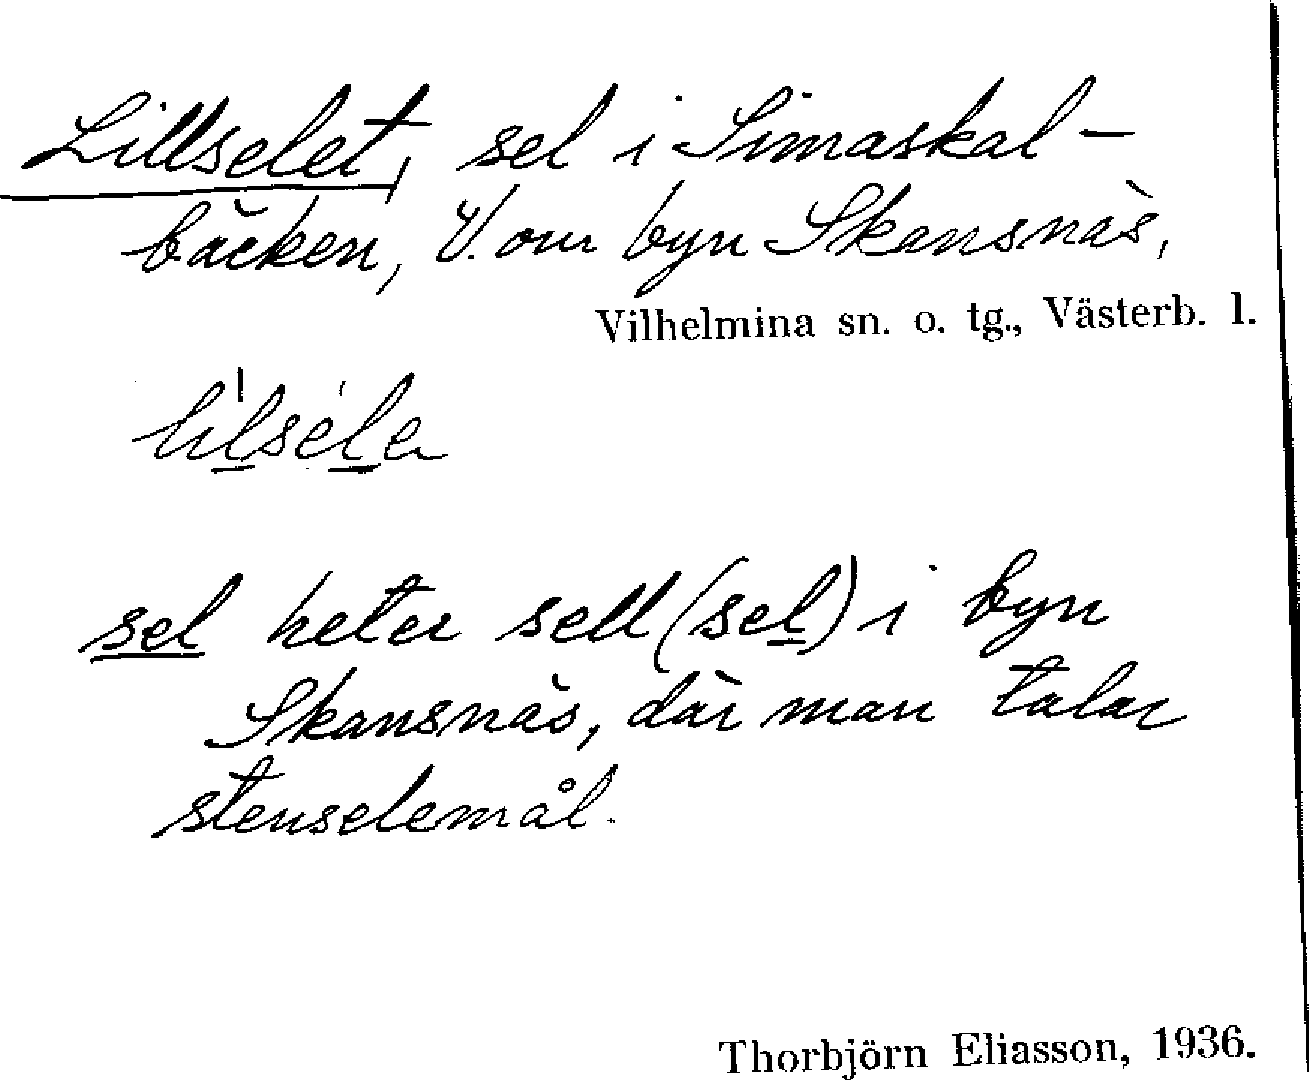 Lillselet, sel i Simaskal-
bäcken, V. om byn Skansnäs,
Vilhelmina sn. o. tg., Västerb. l.
lìlséle
sel heter sell (sel) i byn
Skansnäs, där man talar
stenselemål.
Thorbjörn Eliasson, 1936.